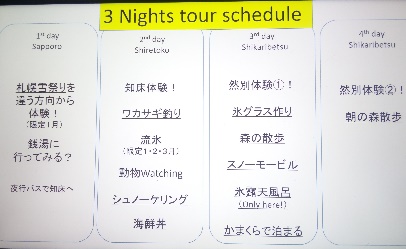 3 Nights tour schedule
1st day
Sapporo
札幌雪祭りを
違う方向から
体験！
(限定1月)
銭湯に
行ってみる？
夜行バスで知床へ
2nd day
Shiretoku
知床体験！
ワカサギ釣り
流氷
(限定1・2・3月)
動物Watching
シュノーケリング
海鮮丼
3rd day
Shikaribetsu
然別体験①！
氷グラス作り
森の散歩
スノーモービル
氷露天風呂
(Only here!)
かまくらで泊まる
4th day
Shikaribetsu
然別体験②！
朝の森散歩